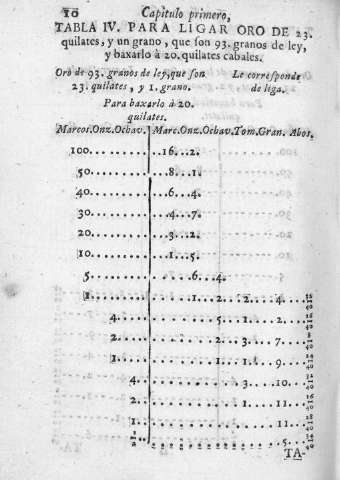 10 Capitulo primero,
TABLA IV. PARA LIGAR ORO DE 23.
quilates, y un grano, que ſon 93. granos de ley,
y baxarlo à 20. quilates cabales.
Oro de 93. granos de ley, que ſon
23. quilates, y 1. grano.
Le correſponde
de liga.
Para baxarlo à 20.
quilates.
Marcos. Onz. Ochav. Marc. Onz. Ochav. Tom. Gran. Abos.
100. 16. 2.
50. 8. 1.
40. 6. 4.
30. 4. 7.
20. 3. 2.
10. 1. 5.
5. 6. 4.
1. 1. 2. 2. 4. 32/40
4. 5. 1. 2. 16/40
2. 2. 3. 7. 8/40
1. 1. 1. 9. 24/40
4. 3. 10. 32/40
2. 1. 11. 16/40
1. 11. 28/40
1/2. 5. 34/40
TA-